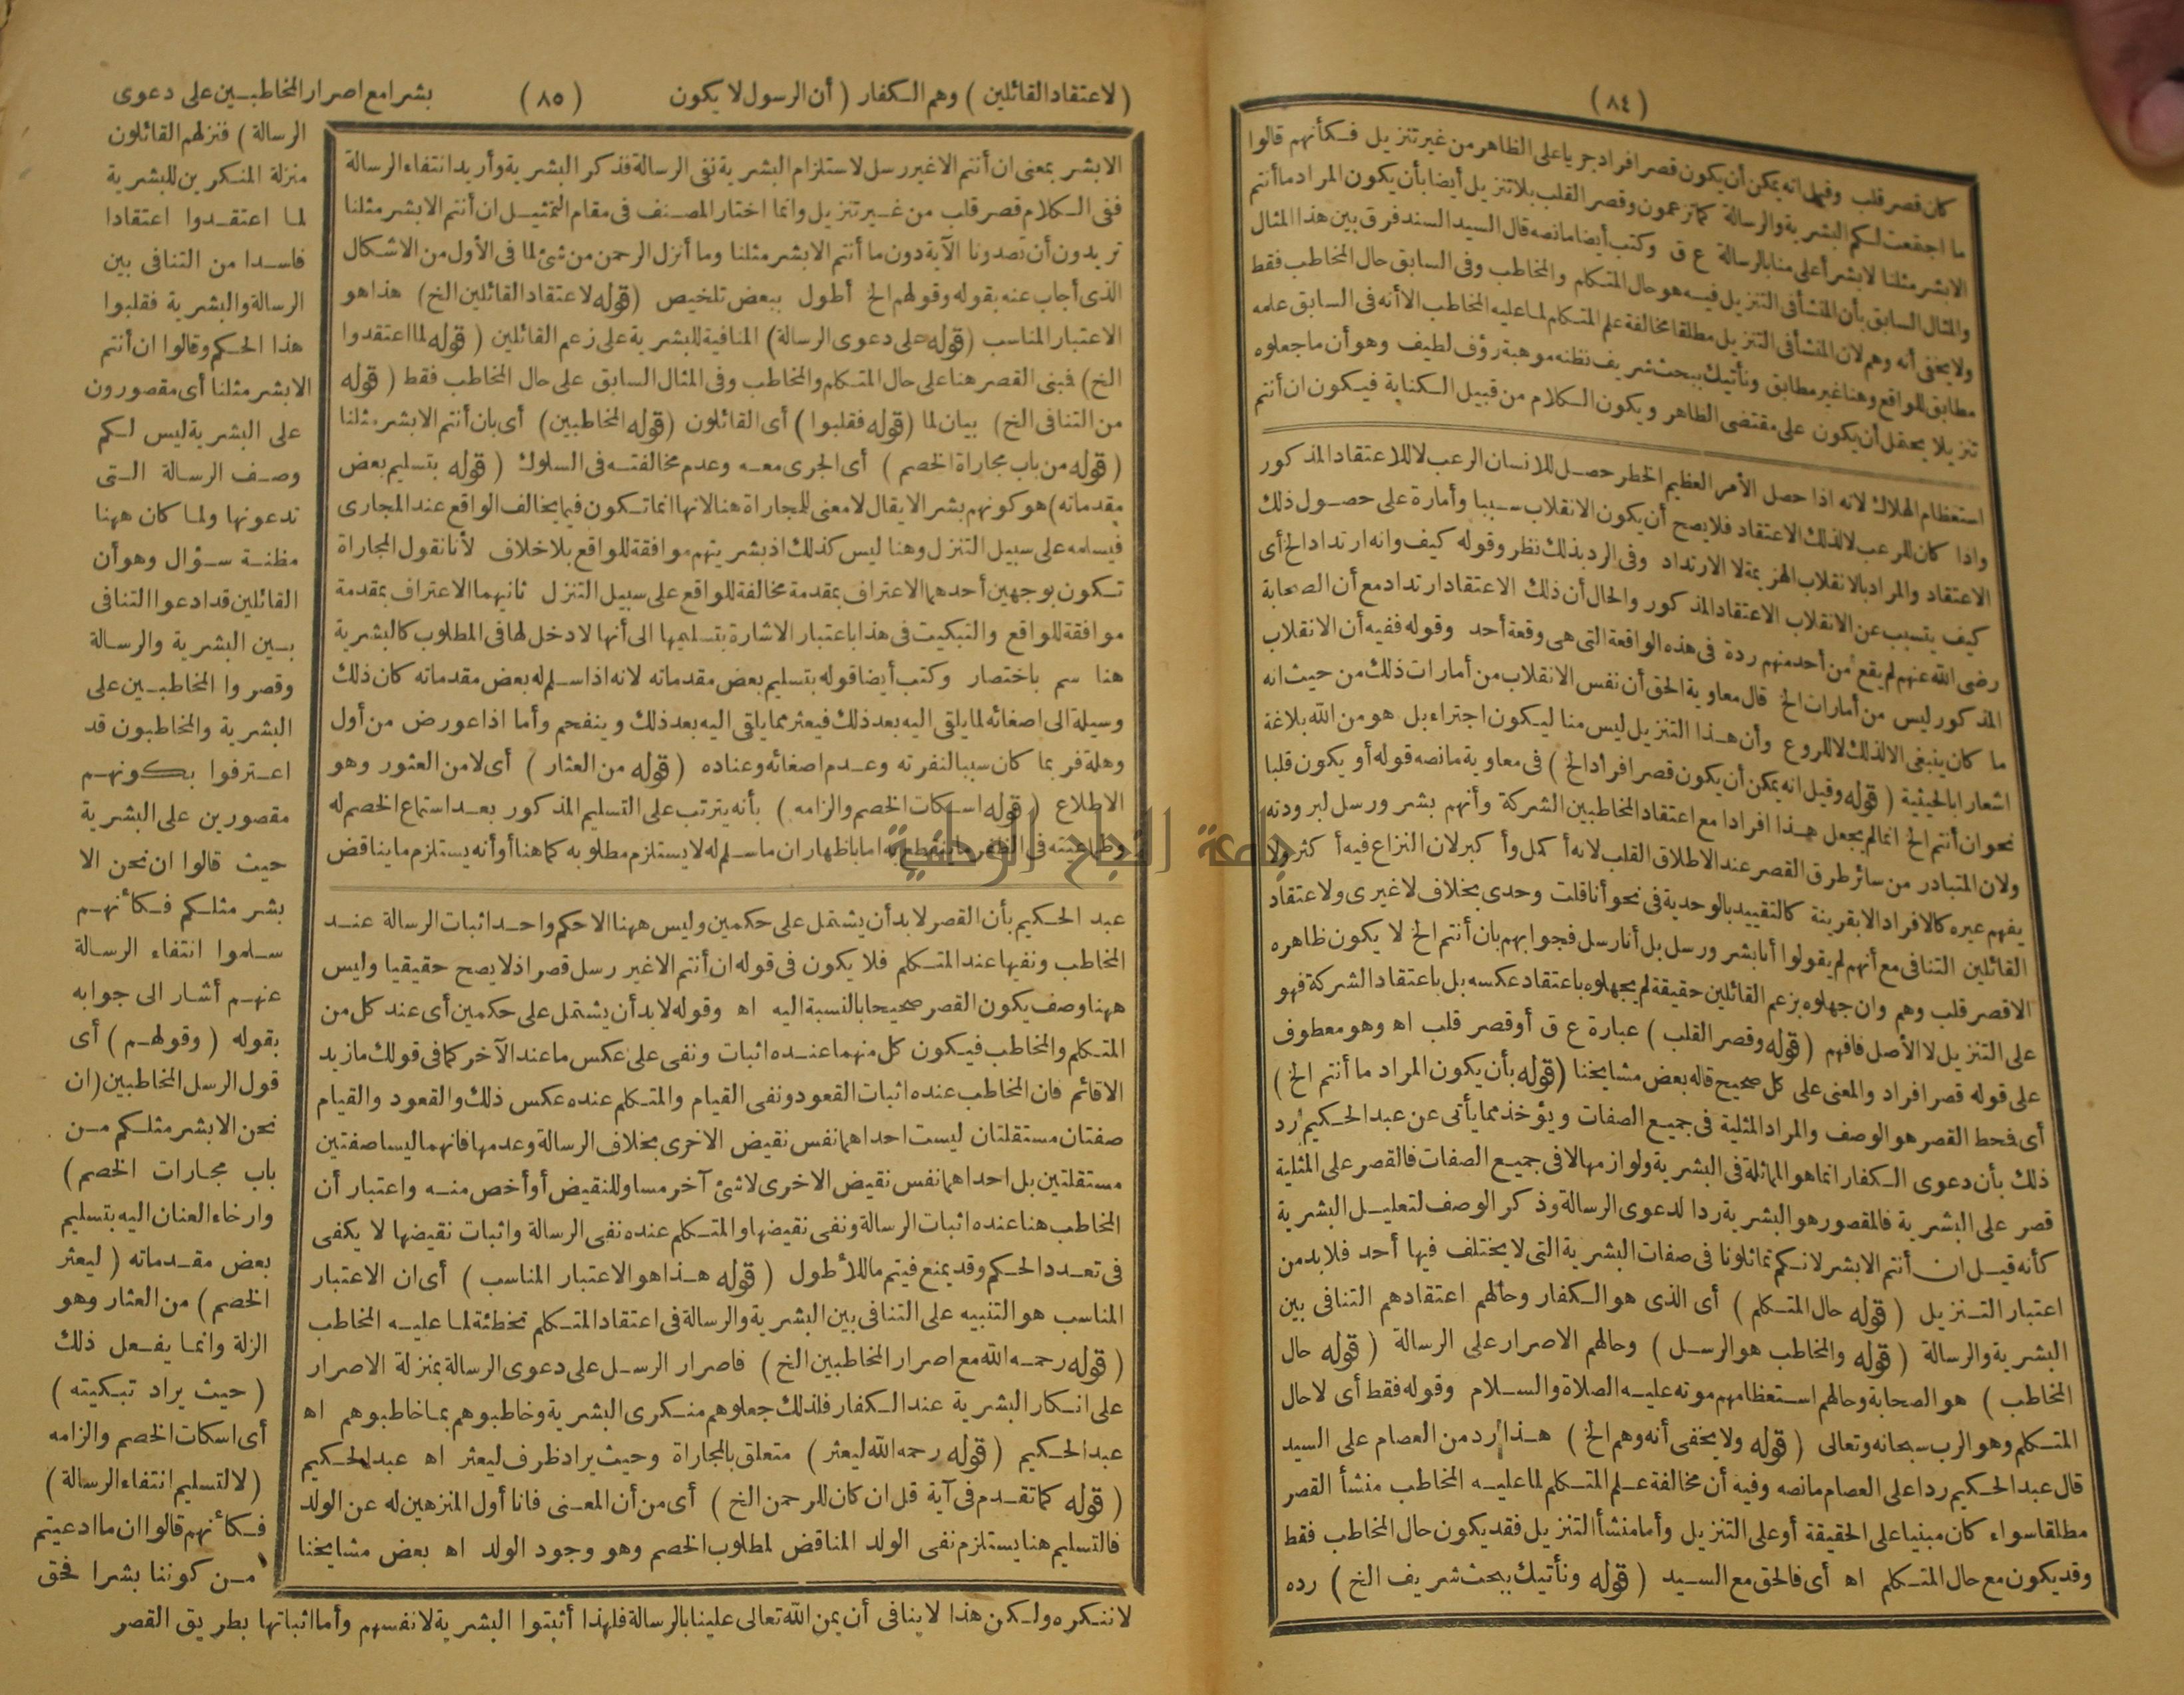 (٨٤)
كان قصر قلب وقيل انه يمكن أن يكون قصر افراد جريا على الظاهر من غير تنزيل فكأنهم قالوا
ما اجتمعت لكم البشرية والرسالة كما تزعمون وقصر القلب بلا تنزيل أيضا بأن يكون المراد ما أنتم
الا بشر مثلنا لا بشر أعلى منا بالرسالة ع ق وكتب أيضا ما نصه قال السيد السند فرق بين هذا المثال
والمثال السابق بأن المنشأ فى التنزيل فيه هو حال المتكلم والمخاطب وفى السابق حال المخاطب فقط
ولا يخفى أنه وهم لان المنشأ فى التنزيل مطلقا مخالفة علم المتكلم لما عليه المخاطب الا أنه فى السابق علمه
مطابق للواقع وهنا غير مطابق ونأتيك ببحث شريف نظنه موهبة رؤف لطيف وهو أن ما جعلوه
تنزيلا يحتمل أن يكون على مقتضى الظاهر ويكون الكلام من قبيل الكناية فيكون ان أنتم
استعظام الهلاك لانه اذا حصل الأمر العظيم الخطر حصل للانسان الرعب لا للاعتقاد المذكور
واذا كان للرعب لا لذلك الاعتقاد فلا يصح أن يكون الانقلاب سببا وأمارة على حصول ذلك
الاعتقاد والمراد بالانقلاب الهزيمة لا الارتداد وفى الرد بذلك نظر وقوله كيف وانه ارتداد الخ أى
كيف يتسبب عن الانقلاب الاعتقاد المذكور والحال أن ذلك الاعتقاد ارتداد مع أن الصحابة
رضى الله عنهم لم يقع من أحد منهم ردة فى هذه الواقعة التى هى وقعة أحد وقوله ففيه أن الانقلاب
المذكور ليس من أمارات الخ قال معاوية الحق أن نفس الانقلاب من أمارات ذلك من حيث انه
ما كان ينبغى الا لذلك لا للروع وأن هذا التنزيل ليس منا ليكون اجتراء بل هو من الله بلاغة
اشعارا بالحيثية (قوله وقيل انه يمكن أن يكون قصر افراد الخ) فى معاوية ما نصه قوله أو يكون قلبا
نحو ان أنتم الخ انما لم يجعل هذا افرادا مع اعتقاد المخاطبين الشركة وأنهم بشر ورسل لبرودته
ولان المتبادر من سائر طرق القصر عند الاطلاق القلب لانه أكمل وأكبر لان النزاع فيه أكثر ولا
يفهم غيره كالافراد الا بقرينة كالتقييد بالوحدية فى نحو أنا قلت وحدى بخلاف لا غيرى ولا عتقاد
القائلين التنافى مع أنهم لم يقولوا أنا بشر ورسل بل أنا رسل فجوابهم بان أنتم الخ لا يكون ظاهره
الا قصر قلب وهم وان جهلوه بزعم القائلين حقيقة لم يجهلوه باعتقاد عكسه بل باعتقاد الشركة فهو
على التنزيل لا الأصل فافهم (قوله وقصر القلب) عبارة ع ق أو قصر قلب اه وهو معطوف
على قوله قصر افراد والمعنى على كل صحيح قاله بعض مشايخنا (قوله بأن يكون المراد ما أنتم الخ)
أى فحط القصر هو الوصف والمراد المثلية فى جميع الصفات ويؤخذ مما يأتى عن عبد الحكيم رد
ذلك بأن دعوى الكفار انما هو المماثلة فى البشرية ولوازمها لا فى جميع الصفات فالقصر على المثلية
قصر على البشرية فالمقصور هو البشرية ردا لدعوى الرسالة وذكر الوصف لتعليل البشرية
كأنه قيل ان أنتم الا بشر لانكم تماثلونا فى صفات البشرية التى لا يختلف فيها أحد فلا بد من
اعتبار التنزيل (قوله حال المتكلم) أى الذى هو الكفار وحالهم اعتقادهم التنافى بين
البشرية والرسالة (قوله والمخاطب هو الرسل) وحالهم الاصرار على الرسالة (قوله حال
المخاطب) هو الصحابة وحالهم استعظامهم موته عليه الصلاة والسلام وقوله فقط أى لا حال
المتكلم وهو الرب سبحانه وتعالى (قوله ولا يخفى أنه وهم الخ) هذا رد من العصام على السيد
قال عبد الحكيم ردا على العصام ما نصه وفيه أن مخالفة علم المتكلم لما عليه المخاطب منشأ القصر
مطلقا سواء كان مبنيا على الحقيقة أو على التنزيل وأما منشأ التنزيل فقد يكون حال المخاطب فقط
وقد يكون مع حال المتكلم اه أى فالحق مع السيد (قوله ونأتيك ببحث شريف الخ) رده
(لاعتقاد القائلين) وهم الكفار (أن الرسول لا يكون (٨٥) بشرا مع اصرار المخاطبين على دعوى
الا بشر بمعنى ان أنتم الا غير رسل لاستلزام البشرية نفى الرسالة فذكر البشرية وأريد انتفاء الرسالة
ففى الكلام قصر قلب من غير تنزيل وانما اختار المصنف فى مقام التمثيل ان أنتم الا بشر مثلنا
تريدون أن تصدونا الآية دون ما أنتم الا بشر مثلنا وما أنزل الرحمن من شئ لما فى الأول من الاشكال
الذى أجاب عنه بقوله وقولهم الخ أطول ببعض تلخيص (قوله لاعتقاد القائلين الخ) هذا هو
الاعتبار المناسب (قوله على دعوى الرسالة) المنافية للبشرية على زعم القائلين (قوله لما اعتقدوا
الخ) فبنى القصر هنا على حال المتكلم والمخاطب وفى المثال السابق على حال المخاطب فقط (قوله
من التنافى الخ) بيان لما (قوله فقلبوا) أى القائلون (قوله المخاطبين) أى بان أنتم الا بشر مثلنا
(قوله من باب مجاراة الخصم) أى الجرى معه وعدم مخالفته فى السلوك (قوله بتسليم بعض
مقدماته) هو كونهم بشرا لا يقال لا معنى للمجاراة هنا لانها انما تكون فيما يخالف الواقع عند المجارى
فيسلمه على سبيل التنزل وهنا ليس كذلك اذ بشريتهم موافقة للواقع بلا خلاف لأنا نقول المجاراة
تكون بوجهين أحدهما الاعتراف بمقدمة مخالفة للواقع على سبيل التنزل ثانيهما الاعتراف بمقدمة
موافقة للواقع والتبكيت فى هذا باعتبار الاشارة بتسليمها الى أنها لا دخل لها فى المطلوب كالبشرية
هنا سم باختصار وكتب أيضا قوله بتسليم بعض مقدماته لانه اذا سلم له بعض مقدماته كان ذلك
وسيلة الى اصغائه لما يلقى اليه بعد ذلك فيعثر مما يلقى اليه بعد ذلك وينفحم وأما اذا عورض من أول
وهلة فربما كان سببا لنفرته وعدم اصغائه وعناده (قوله من العثار) أى لا من العثور وهو
الاطلاع (قوله اسكات الخصم والزامه) بأنه يترتب على التسليم المذكور بعد استماع الخصم له
اما باظهار ان ما سلم له لا يستلزم مطلوبه كما هنا أو أنه يستلزم ما يناقض
عبد الحكيم بأن القصر لا بد أن يشتمل على حكمين وليس ههنا الا حكم واحد اثبات الرسالة عند
المخاطب ونفيها عند المتكلم فلا يكون فى قوله ان أنتم الا غير رسل قصر اذ لا يصح حقيقيا وليس
ههنا وصف يكون القصر صحيحا بالنسبة اليه اه وقوله لا بد أن يشتمل على حكمين أى عند كل من
المتكلم والمخاطب فيكون كل منهما عنده اثبات ونفى على عكس ما عند الآخر كما فى قولك ما زيد
الا قائم فان المخاطب عنده اثبات القعود ونفى القيام والمتكلم عنده عكس ذلك والقعود والقيام
صفتان مستقلتان ليست احداهما نفس نقيض الاخرى بخلاف الرسالة وعدمها فانهما ليسا صفتين
مستقلتين بل احداهما نفس نقيض الاخرى لا شئ آخر مساو للنقيض أو أخص منه واعتبار أن
المخاطب هنا عنده اثبات الرسالة ونفى نقيضها والمتكلم عنده نفى الرسالة واثبات نقيضها لا يكفى
فى تعدد الحكم وقد يمنع فيتم ما للأطول (قوله هذا هو الاعتبار المناسب) أى ان الاعتبار
المناسب هو التنبيه على التنافى بين البشرية والرسالة فى اعتقاد المتكلم تخطئة لما عليه المخاطب
(قوله رحمه الله مع اصرار المخاطبين الخ) فاصرار الرسل على دعوى الرسالة بمنزلة الاصرار
على انكار البشرية عند الكفار فلذلك جعلوهم منكرى البشرية وخاطبوهم بما خاطبوهم اه
عبد الحكيم (قوله رحمه الله ليعثر) متعلق بالمجاراة وحيث يراد ظرف ليعثر اه عبد الحكيم
(قوله كما تقدم فى آية قل ان كان للرحمن الخ) أى من أن المعنى فانا أول المنزهين له عن الولد
فالتسليم هنا يستلزم نفى الولد المناقض لمطلوب الخصم وهو وجود الولد اه بعض مشايخنا
الرسالة) فنزلهم القائلون
منزلة المنكرين للبشرية
لما اعتقدوا اعتقادا
فاسدا من التنافى بين
الرسالة والبشرية فقلبوا
هذا الحكم وقالوا ان أنتم
الا بشر مثلنا أى مقصورون
على البشرية ليس لكم
وصف الرسالة التى
تدعونها ولما كان ههنا
مظنة سؤال وهو أن
القائلين قد ادعوا التنافى
بين البشرية والرسالة
وقصروا المخاطبين على
البشرية والمخاطبون قد
اعترفوا بكونهم
مقصورين على البشرية
حيث قالوا ان نحن الا
بشر مثلكم فكأنهم
سلموا انتفاء الرسالة
عنهم أشار الى جوابه
بقوله (وقولهم) أى
قول الرسل المخاطبين (ان
نحن الا بشر مثلكم من
باب مجارات الخصم)
وارخاء العنان اليه بتسليم
بعض مقدماته (ليعثر
الخصم) من العثار وهو
الزلة وانما يفعل ذلك
(حيث يراد تبكيته)
أى اسكات الخصم والزامه
(لا لتسليم انتفاء الرسالة)
فكأنهم قالوا ان ما ادعيتم
من كوننا بشرا فحق
لا ننكره ولكن هذا لا ينافى أن يمن الله تعالى علينا بالرسالة فلهذا أثبتوا البشرية لانفسهم وأما اثباتها بطريق القصر
جامعة النجاح الوطنية